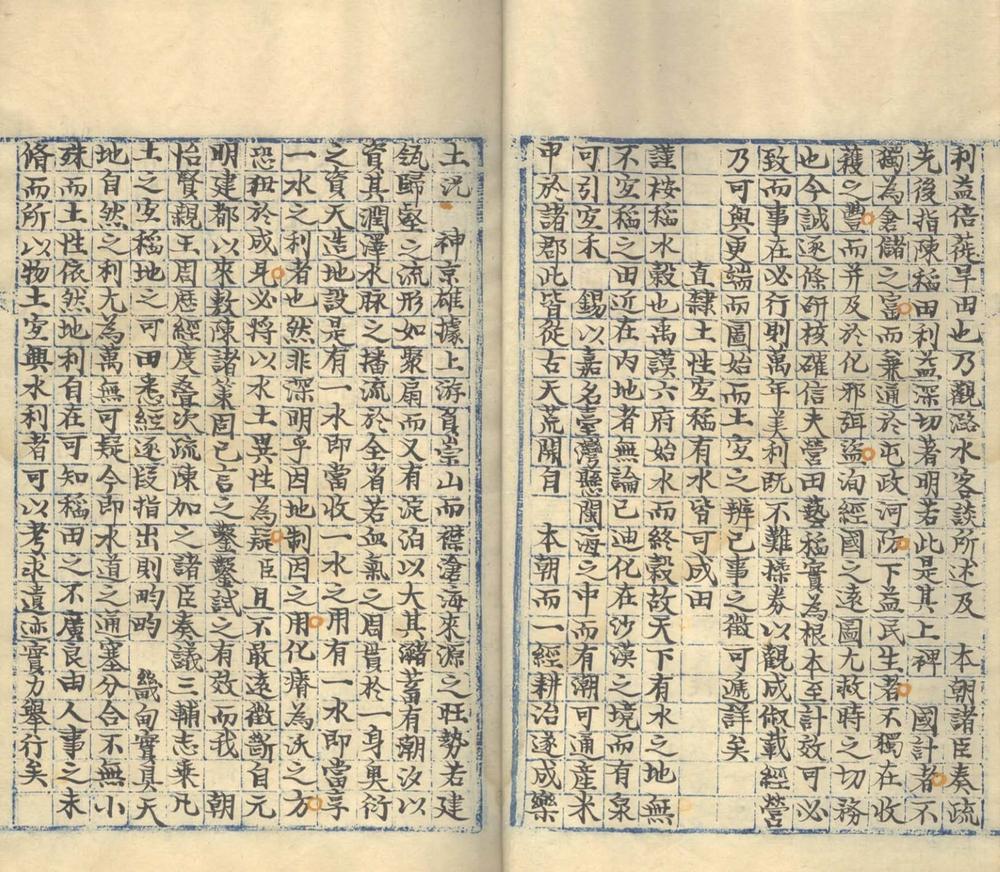 利益倍蓰旱田也乃觀潞水客談所述及 本朝諸臣奏疏
先後指陳稻田利益深切著明若此是其上裨 國計者不
獨為倉儲之富而兼通於屯政河防下益民生者不獨在收
穫之豐而并及於化邪弭盜洵經國之遠圖尤救時之切務
也今誠逐條研核確信夫營田藝稻實為根本至計效可必
致而事在必行則萬年美利既不難操券以觀成俶載經營
乃可與更端而圖始而土宜之辨已事之徵可遞詳矣
直隸土性宜稻有水皆可成田
謹按稻水穀也禹謨六府始水而終穀故天下有水之地無
不宜稻之田近在內地者無論已迪化在沙漠之境而有泉
可引宜禾 錫以嘉名臺灣懸閩海之中而有潮可通產米
甲於諸郡此皆從古天荒開自 本朝而一經耕治遂成樂
土況 神京雄據上游負崇山而襟滄海來源之旺勢若建
瓴歸壑之流形如聚扇而又有淀泊以大其瀦蓄有潮汐以
資其潤澤水脉之播流於全省若血氣之周貫於一身奧衍
之資天造地設是有一水即當收一水之用有一水即當享
一水之利者也然非深明乎因地制因之用化瘠為沃之方
恐狃於成見必將以水土異性為疑臣且不敢遠徵斷自元
明建都以來敷陳諸策固已言之鑿鑿試之有效而我 朝
怡賢親王周歷經度叠次疏陳加之諸臣奏議三輔志乘凡
土之宜稻地之可田悉經逐段指出則畇畇 畿甸實具天
地自然之利尤為萬無可疑今即水道之通塞分合不無小
殊而土性依然地利自在可知稻田之不廣良由人事之未
脩而所以物土宜興水利者可以考求遺迹實力舉行矣